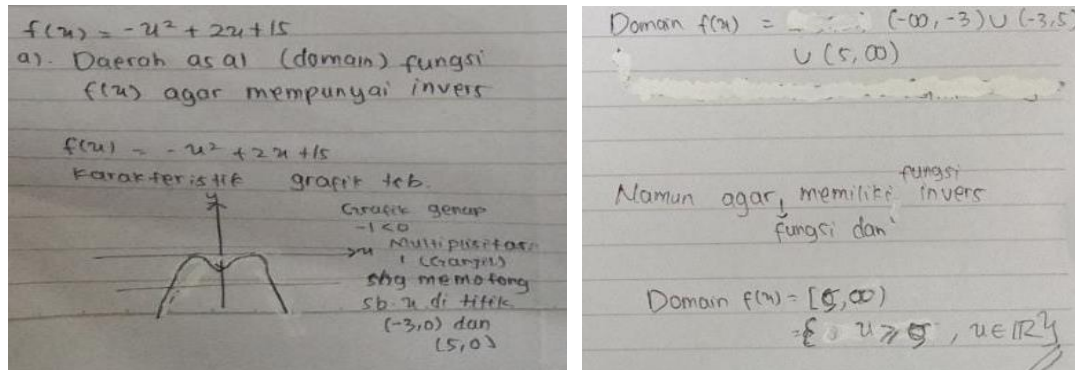 f(x) = -x² + 2x + 15
a). Daerah asal (domain) fungsi
f(x) agar mempunyai invers
f(x) = -x² + 2x + 15
Karakteristik grafik tsb.
y
Grafik genap
-1 < 0
x
Multiplisitas
1 (Ganjil)
shg memotong
sb. x di titik
(-3,0) dan
(5,0)
Domain f(x) = (-∞, -3) ∪ (-3,5)
∪ (5, ∞)
fungsi
Namun agar, memiliki invers
fungsi dan
Domain f(x) = [5, ∞)
= { x ≥ 5, x ∈ ℝ}